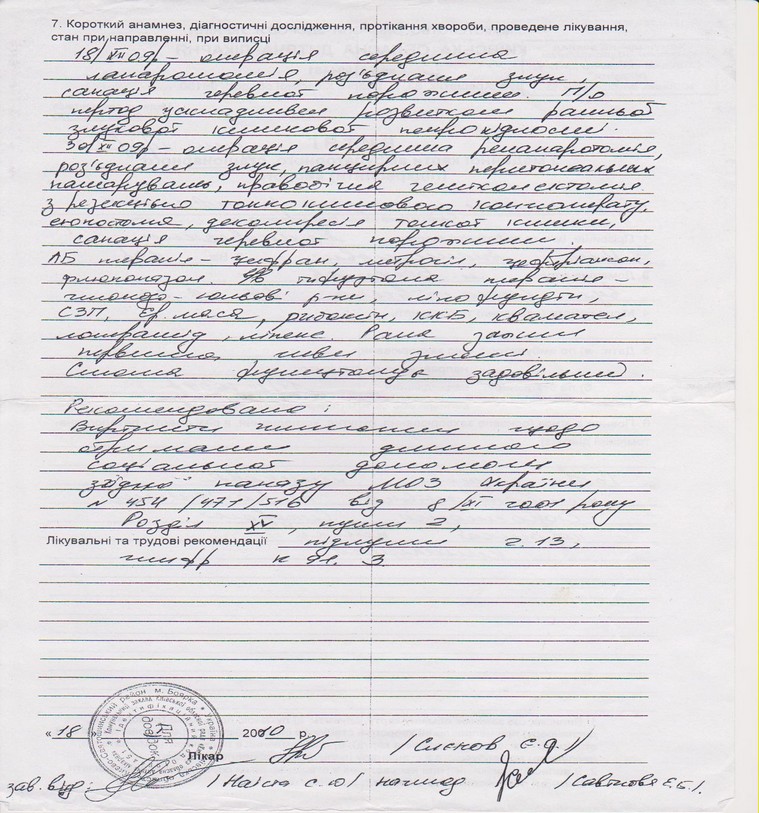 7. Короткий анамнез, діагностичні дослідження, протікання хвороби, проведене лікування,
стан при направленні, при виписці
18/XII 09р – операція середина
лапаротомія, роз'єднання злук,
санація черевної порожнини. П/о
період ускладнився розвитком ранньої
злукової кишкової непрохідності.
30/XII 09р – операція середина релапаротомія,
роз'єднання злук, панцирних перитонеальних
нашарувань, правобічна геміколектомія
з резекцією тонкокишкового конгломерату,
ілеостомія, декомпресія тонкої кишки,
санація черевної порожнини.
АБ терапія – цефран, метрогіл,
флюконазол. терапія –
р-ни,
СЗП, Ер. маса, ККБ, квамател,
лоперамід, Рана
швом
Стома функціонує задовільно.
Рекомендовано:
Вирішити питання щодо
отримання
соціальної допомоги
згідно наказу МОЗ України
№ 454/471/516 від 8/XI 2001 року
Розділ XV, пункт 2,
Лікувальні та трудові рекомендації підпункт 2.13,
шифр К 91.3
« 18 » 2010 р.
Для довідок
Лікар
зав. від. начмед